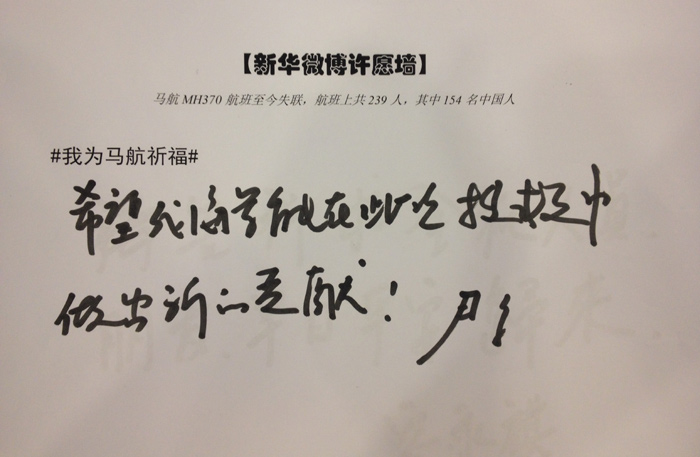 【新华微博许愿墙】
马航 MH370 航班至今失联，航班上共 239 人，其中 154 名中国人
#我为马航祈福#
希望我海军能在此次搜救中
做出新的贡献！ 尹